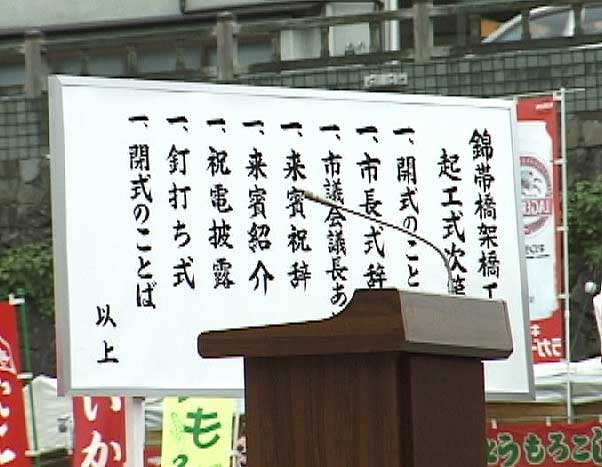 錦帯橋架橋工
起工式次第
一、開式のこと
一、市長式辞
一、市議会議長あ
一、来賓祝辞
一、来賓紹介
一、祝電披露
一、釘打ち式
一、閉式のことば
以上
LAGER
ラガー
いか
も
とうもろこし